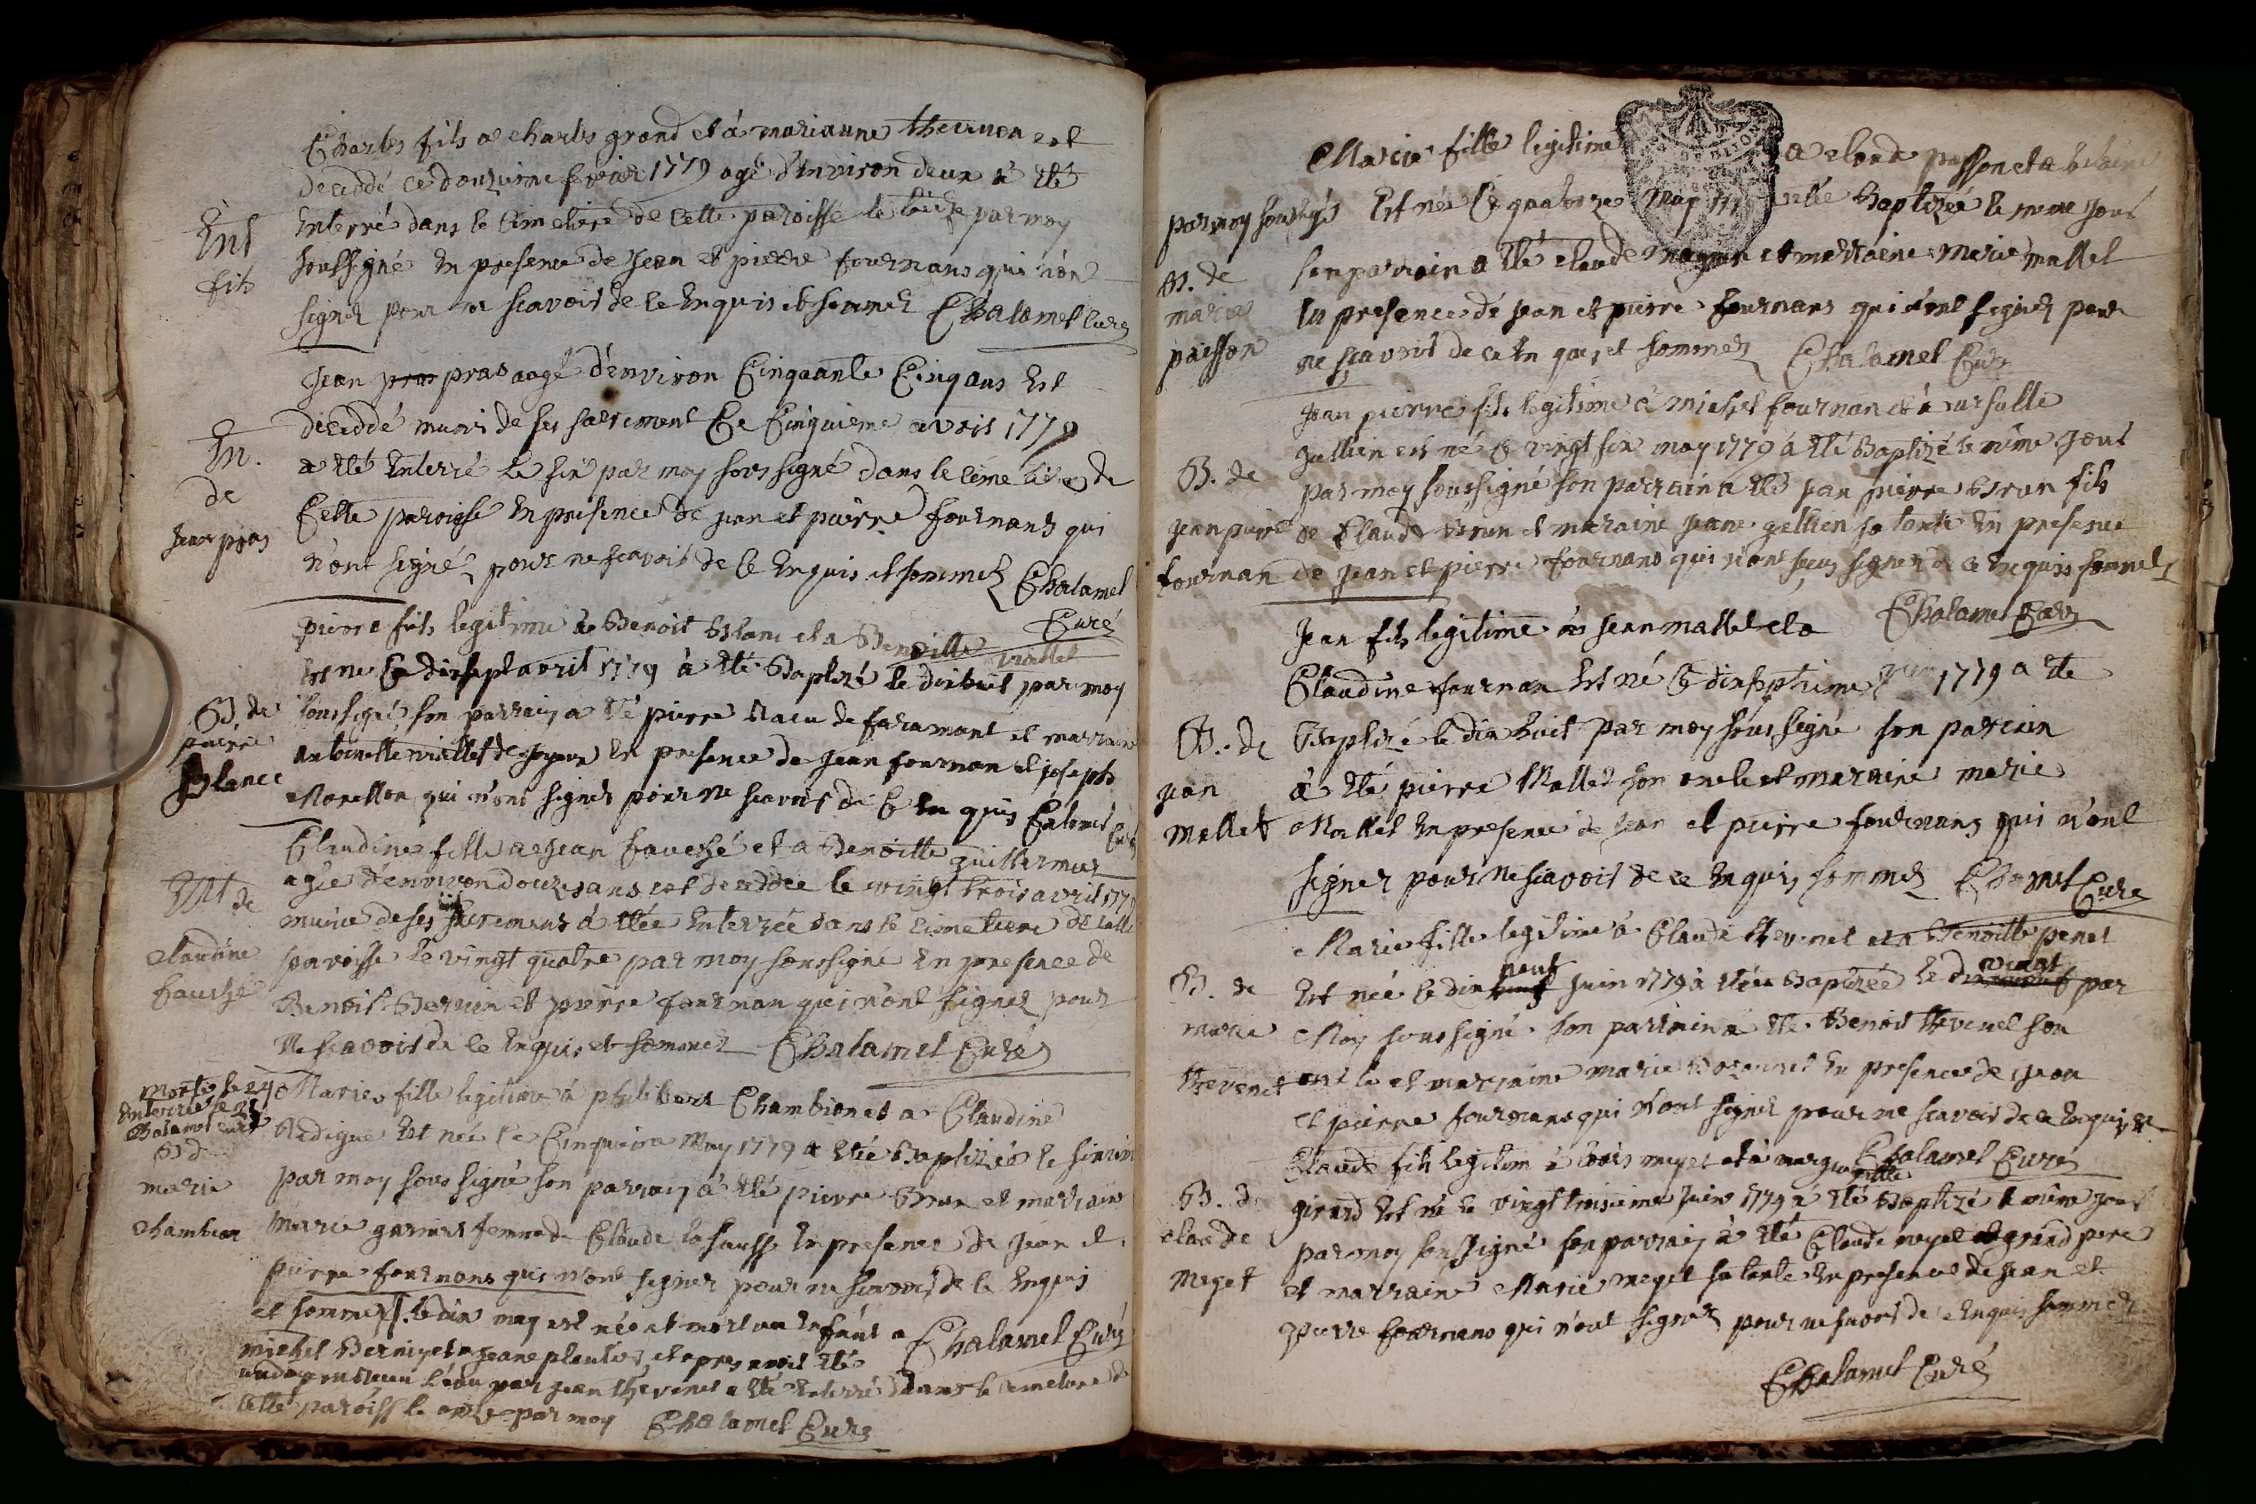 Charles fils a charles grand et à marianne thevenon est
deceddé ce douzieme fevrier 1779 agé d'environ deux à eté
Ent
fils
Enterré dans le cimetiere de cette paroisse le treize par moy
soussigné En presence de Jean et pierre fournans qui n'ont
signez pour ne scavoir de ce Enquis et sommez Chalamel Curé
Jean pras aagé d'environ Cinquante Cinq ans Est
decedde muni de ses sacrement Ce Cinquieme avril 1779
En.
de
Jean pras
a eté Enterré le six par moy sous signé dans le cimetiere de
Cette paroisse En presence de jean et pierre fournans qui
n'ont signéz pour ne scavoir de ce Enquis et sommez Chalamel
Curé
pierre fils legitime a Benoit Blanc et a Benoitte viallet
Est ne Ce dixsept avril 1779 à eté Baptizé le dixhuit par moy
B. de
pierre
Blanc
soussigné son parrain a eté pierre de faramant et marraine
antoinette viallet de joyeux En presence de Jean fournan et joseph
Morellon qui n'ont signez pour ne scavoir de ce En quis Chalamel Curé
Claudine fille a jean fauché et a Benoitte guillermet
agée d'environ douze ans est decedée le vingt trois avril 1779
Ent de
claudine
fauché
munie de ses sacremens à etée Enterrée dans le cimetiere de cette
paroisse le vingt quatre par moy soussigné En presence de
Benoit et pierre fournan qui n'ont signez pour
Ne scavoir de ce Enquis et sommez Chalamel Curé
Morte le 24
Enterrée le 25
Chalamel curé
B de
marie
chambion
Marie fille legitime à philibert Chambion et a Claudine
Est née le Cinquieme May 1779 a etée Baptizée le sixieme
par moy sous signé son parrain à eté pierre Brun et marraine
Marie femme de Claude En presence de jean et
pierre fournans qui n'ont signez pour ne scavoir de ce Enquis
et sommez. le dix may est née et mort un Enfant a Chalamel Curé
michel et a jeane et apres avoir eté
par jean thévenet a eté Enterré dans le cimetiere de
cette paroisse le onze par moy Chalamel Curé
Marie fille legitime a claude passon et a
par moy soussigné
Est née Ce quatorze May etée Baptizée le meme jour
B. de
marie
paisson
son parrain a eté claude et marraine Marie mallet
En presence de jean et pierre fournans qui n'ont signez pour
ne scavoir de ce En quis et sommez Chalamel Curé
Jean pierre fils legitime à michel fournan et à ursulle
jullien est né le vingt six may 1779 à eté Baptizé le même jour
B. de
jean pierre
fournan
par moy soussigné son parrain a eté jean pierre brun fils
de Claude brun et maraine jeane sa tante En presence
de jean et pierre fournans qui n'ont sceu signer de ce Enquis sommez
Chalamel Curé
Jean fils legitime a jean mallet et a
Claudine fournan Est né le dixseptieme juin 1779 a eté
B. de
jean
mallet
Baptizé le dix huit par moy sous signé son parain
à eté pierre Mallet son oncle et maraine marie
Mallet En presence de jean et pierre fournans qui n'ont
signer pour ne scavoir de ce Enquis sommez Chalamel Curé
Marie fille legitime à Claude thevenet et a Benoitte penet
B. de
marie
thevenet
Est née le dix neuf juin 1779 à etée Baptizée le vingt par
Moy sous signé son parrain à eté Benoit thevenet son
oncle et marraine marie En presence de jean
et pierre fournans qui n'ont signez pour ne scavoir de ce Enquis
Chalamel Curé
Claude fils legitim à Louis meyet et à margueritte
B. de
claude
Meyet
girard Est né le vingt troisieme Juin 1779 a eté Baptizé le même jour
par moy soussigné son parrain à eté Claude meyet grand pere
et marraine Marie meyet sa tante En presence de Jean et
pierre fournans qui n'ont signez pour ne scavoir de Enquis sommez
Chalamel Curé